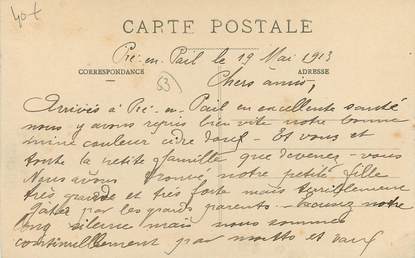 40+
CARTE POSTALE
Pré-en-Pail le 19 Mai 1913
CORRESPONDANCE
ADRESSE
53
Chers amis,
Arrivés à Pré-en-Pail en excellente santé
nous y avons repris bien vite notre bonne
mine couleur cidre doux - Et vous et
toute la petite famille que devenez-vous
Nous avons trouvé notre petite fille
très grande et très forte mais terriblement
gâtée par les grands parents - Excusez notre
long silence mais nous sommes
continuellement par monts et vaux